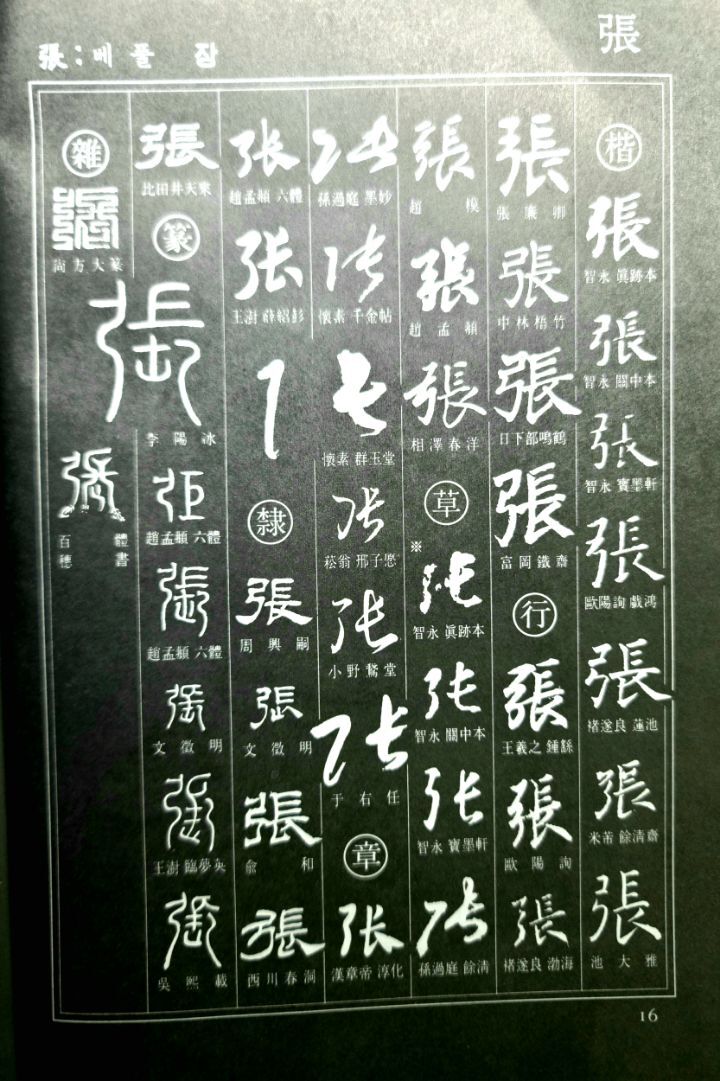 張
張:베풀 장
楷
張
智永 眞跡本
張
智永 關中本
張
智永 寶墨軒
張
歐陽詢 戲鴻
張
褚遂良 蓮池
張
米芾 餘淸齋
張
池大雅
張
張廉卿
張
中林梧竹
張
日下部鳴鶴
張
富岡鐵齋
行
張
王羲之 鍾繇
張
歐陽詢
張
褚遂良 渤海
張
趙樸
張
趙孟頫
張
相澤春洋
草
※
張
智永 眞跡本
張
智永 關中本
張
智永 寶墨軒
張
孫過庭 餘淸
張
孫過庭 墨妙
張
懷素 千金帖
張
懷素 群玉堂
張
菘翁 邢子愿
張
小野鵞堂
張
于右任
章
張
漢章帝 淳化
張
趙孟頫 六體
張
王澍 薛紹彭
隸
張
周興嗣
張
文徵明
張
兪和
張
西川春洞
張
比田井天來
篆
張
李陽冰
張
趙孟頫 六體
張
趙孟頫 六體
張
文徵明
張
王澍 臨夢英
張
吳熙載
雜
張
尙方大篆
張
百體書
穗
16